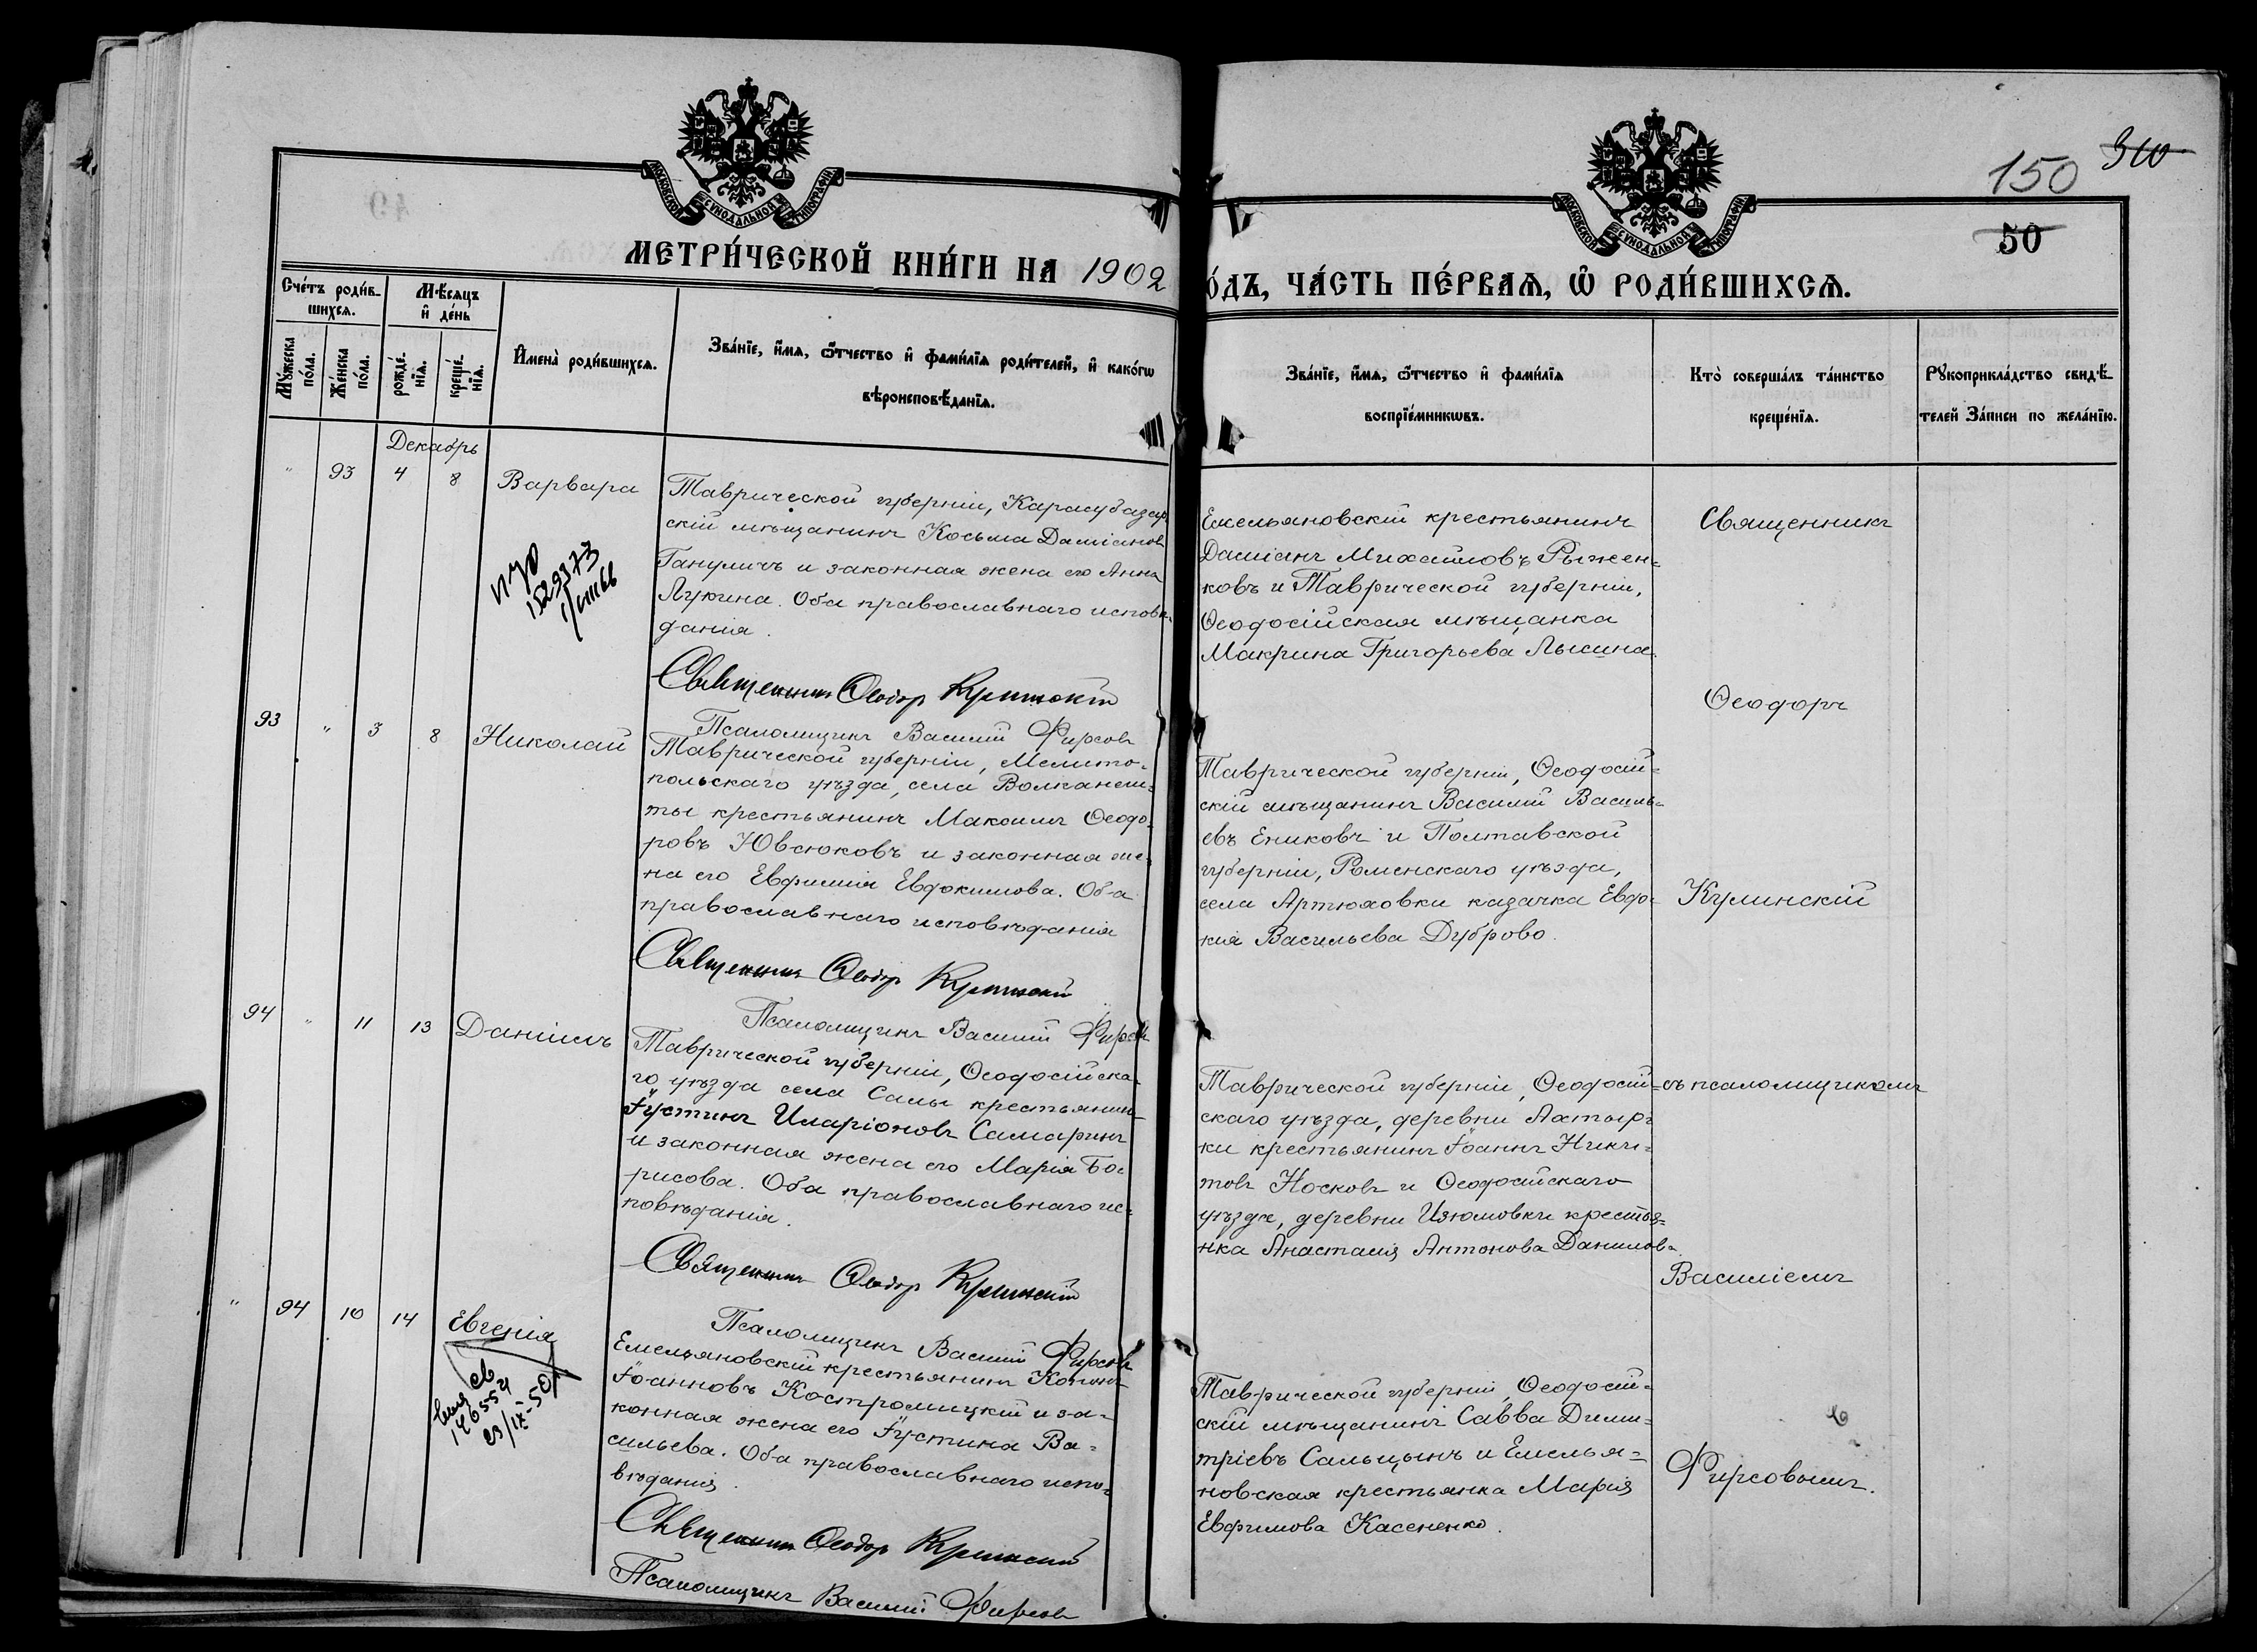 МОСКОВСКОЙ СѴНОДАЛЬНОЙ ТИПОГРАФІИ
МОСКОВСКОЙ СѴНОДАЛЬНОЙ ТИПОГРАФІИ
150
50
МЕТРИ́ЧЕСКОЙ КНИ́ГИ НА 1902
О́ДЪ, ЧА́СТЬ ПЕ́РВАѦ, Ѿ РОДИ́ВШИХСѦ.
Сче́тъ роди́в-
шихсѧ.
Мѣ́сѧцъ
и҆ де́нь
Мꙋ́жеска
по́ла.
Же́нска
по́ла.
рожде́-
нїѧ.
креще́-
нїѧ.
И҆мена̀ роди́вшихсѧ.
Зва́нїе, и҆́мѧ, ѻ҆́тчество и҆ фами́лїѧ роди́телей, и҆ како́гѡ
вѣроисповѣ́данїѧ.
Зва́нїе, и҆́мѧ, ѻ҆́тчество и҆ фами́лїѧ
воспрїе́мникѡвъ.
Кто̀ соверша́лъ та́инство
креще́нїѧ.
Рꙋкоприкла́дство свидѣ́-
телей За́писи по жела́нїю.
Декабрь
" 93 4 8 Варвара
Таврической губерніи, Карасубазар
скій мѣщанинъ Косьма Даміановъ
Гануличъ и законная жена его Анна
Лукина. Оба православнаго исповѣ-
данія.
Священникъ Ѳеодоръ Кулинскій
Псаломщикъ Василій Фирсовъ
Емельяновскій крестьянинъ
Даміанъ Михаиловъ Рыжен=
ковъ и Таврической губерніи,
Ѳеодосійская мѣщанка
Макрина Григорьева Лысина.
Священникъ
Ѳеодоръ
93 " 3 8 Николай
Таврической губерніи, Мелито-
польскаго уѣзда, села Волканеш-
ты крестьянинъ Максимъ Ѳеодо-
ровъ Ювсюковъ и законная же-
на его Евфимія Евдокимова. Оба
православнаго исповѣданія
Священникъ Ѳеодоръ Кулинскій
Псаломщикъ Василій Фирсовъ
Таврической губерніи, Ѳеодосій-
скій мѣщанинъ Василій Василь-
евъ Ениковъ и Полтавской
губерніи, Роменскаго уѣзда,
села Артюховки казачка Евдо-
кія Васильева Дуброво.
Кулинскій
94 " 11 13 Даніилъ
Таврической губерніи, Ѳеодосійска-
го уѣзда села Салы крестьянинъ
Іустинъ Иларіоновъ Самаринъ
и законная жена его Марія Бо-
рисова. Оба православнаго ис-
повѣданія.
Священникъ Ѳеодоръ Кулинскій
Псаломщикъ Василій Фирсовъ
Таврической губерніи, Ѳеодосій-
скаго уѣзда, деревни Ахтыр-
ки крестьянинъ Іоаннъ Ники-
товъ Носковъ и Ѳеодосійскаго
уѣзда, деревни Изюмовки крестья-
нка Анастасія Антонова Данилова.
съ псаломщикомъ
Василіемъ
" 94 10 14 Евгенія
Емельяновскій крестьянинъ Кононъ
Іоанновъ Костромицкій и за-
конная жена его Іустина Ва-
сильева. Оба православнаго испо-
вѣданія.
Священникъ Ѳеодоръ Кулинскій
Псаломщикъ Василій Фирсовъ
Таврической губерніи, Ѳеодосій-
скій мѣщанинъ Савва Дими-
тріевъ Сальцынъ и Емелья=
новская крестьянка Марія
Евфимова Касененко.
Фирсовымъ.